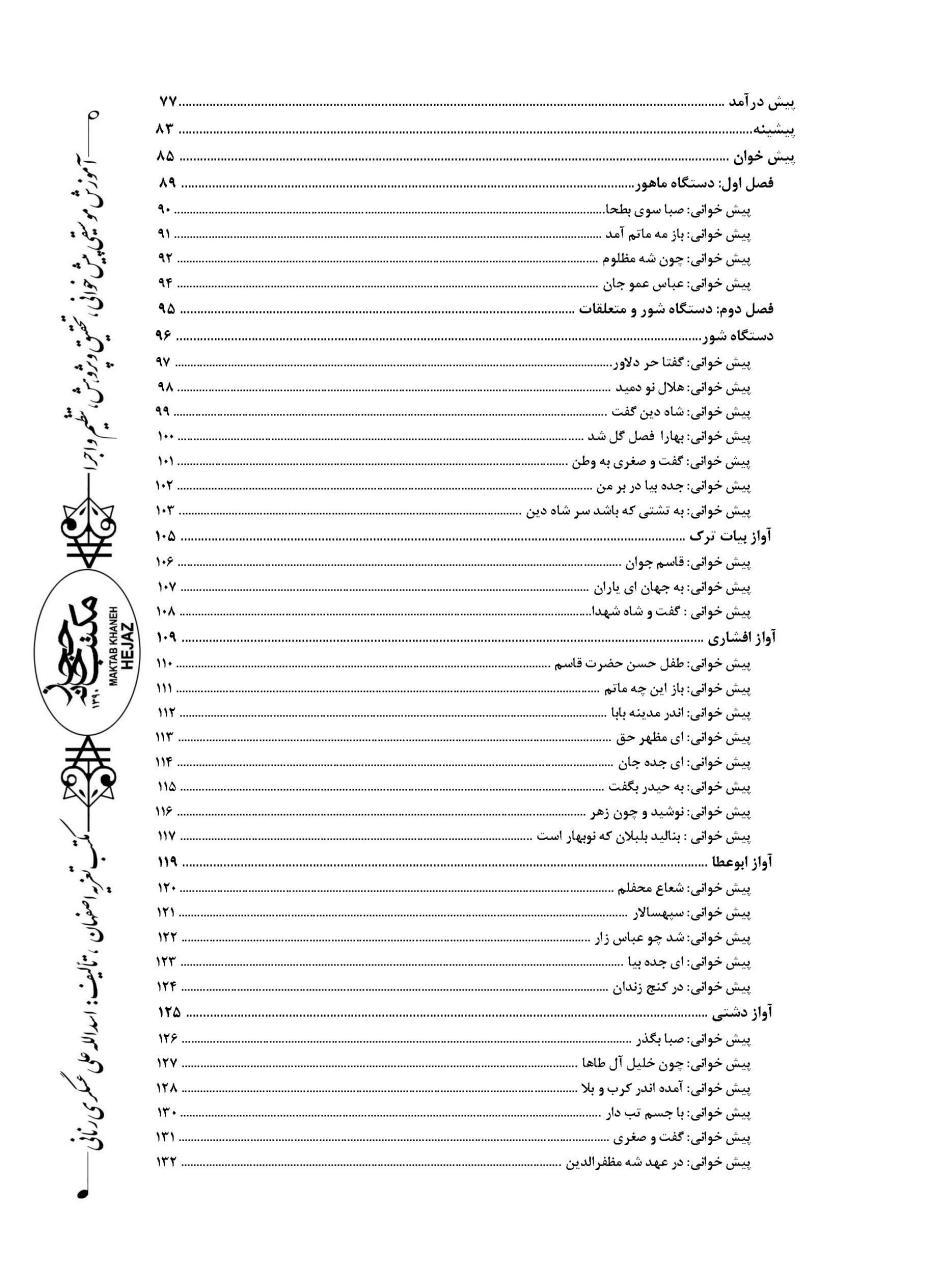 پیش درآمد ........ ۷۷
پیشینه ........ ۸۳
پیش خوان ........ ۸۵
فصل اول: دستگاه ماهور ........ ۸۹
پیش خوانی: صبا سوی بطحا ........ ۹۰
پیش خوانی: باز مه ماتم آمد ........ ۹۱
پیش خوانی: چون شه مظلوم ........ ۹۲
پیش خوانی: عباس عمو جان ........ ۹۴
فصل دوم: دستگاه شور و متعلقات ........ ۹۵
دستگاه شور ........ ۹۶
پیش خوانی: گفتا حر دلاور ........ ۹۷
پیش خوانی: هلال نو دمید ........ ۹۸
پیش خوانی: شاه دین گفت ........ ۹۹
پیش خوانی: بهارا فصل گل شد ........ ۱۰۰
پیش خوانی: گفت و صغری به وطن ........ ۱۰۱
پیش خوانی: جده بیا در بر من ........ ۱۰۲
پیش خوانی: به تشتی که باشد سر شاه دین ........ ۱۰۳
آواز بیات ترک ........ ۱۰۵
پیش خوانی: قاسم جوان ........ ۱۰۶
پیش خوانی: به جهان ای یاران ........ ۱۰۷
پیش خوانی : گفت و شاه شهدا ........ ۱۰۸
آواز افشاری ........ ۱۰۹
پیش خوانی: طفل حسن حضرت قاسم ........ ۱۱۰
پیش خوانی: باز این چه ماتم ........ ۱۱۱
پیش خوانی: اندر مدینه بابا ........ ۱۱۲
پیش خوانی: ای مظهر حق ........ ۱۱۳
پیش خوانی: ای جده جان ........ ۱۱۴
پیش خوانی: به حیدر بگفت ........ ۱۱۵
پیش خوانی: نوشید و چون زهر ........ ۱۱۶
پیش خوانی : بنالید بلبلان که نوبهار است ........ ۱۱۷
آواز ابوعطا ........ ۱۱۹
پیش خوانی: شعاع محفلم ........ ۱۲۰
پیش خوانی: سپهسالار ........ ۱۲۱
پیش خوانی: شد چو عباس زار ........ ۱۲۲
پیش خوانی: ای جده بیا ........ ۱۲۳
پیش خوانی: در کنج زندان ........ ۱۲۴
آواز دشتی ........ ۱۲۵
پیش خوانی: صبا بگذر ........ ۱۲۶
پیش خوانی: چون خلیل آل طاها ........ ۱۲۷
پیش خوانی: آمده اندر کرب و بلا ........ ۱۲۸
پیش خوانی: با جسم تب دار ........ ۱۳۰
پیش خوانی: گفت و صغری ........ ۱۳۱
پیش خوانی: در عهد شه مظفرالدین ........ ۱۳۲
آموزش موسیقی پیش خوانی، تحقیق و پژوهش، تنظیم و اجرا
مکتب خانه حجاز
۱۳۹۰
MAKTAB KHANEH
HEJAZ
مکتب تعزیه اصفهان، تألیف: اسدالله علی عسکری رنانی